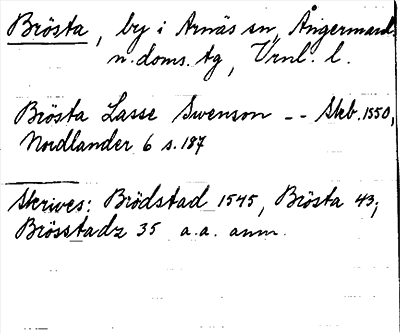 Brösta, by i Arnäs sn, Ångermanl.
n. doms. tg, Vrnl. l.
Brösta Lasse Swenson -- Skb. 1550,
Nordlander 6 s. 187
Skrives: Brödstad 1545, Brösta 43;
Brösstadz 35 a.a. anm.